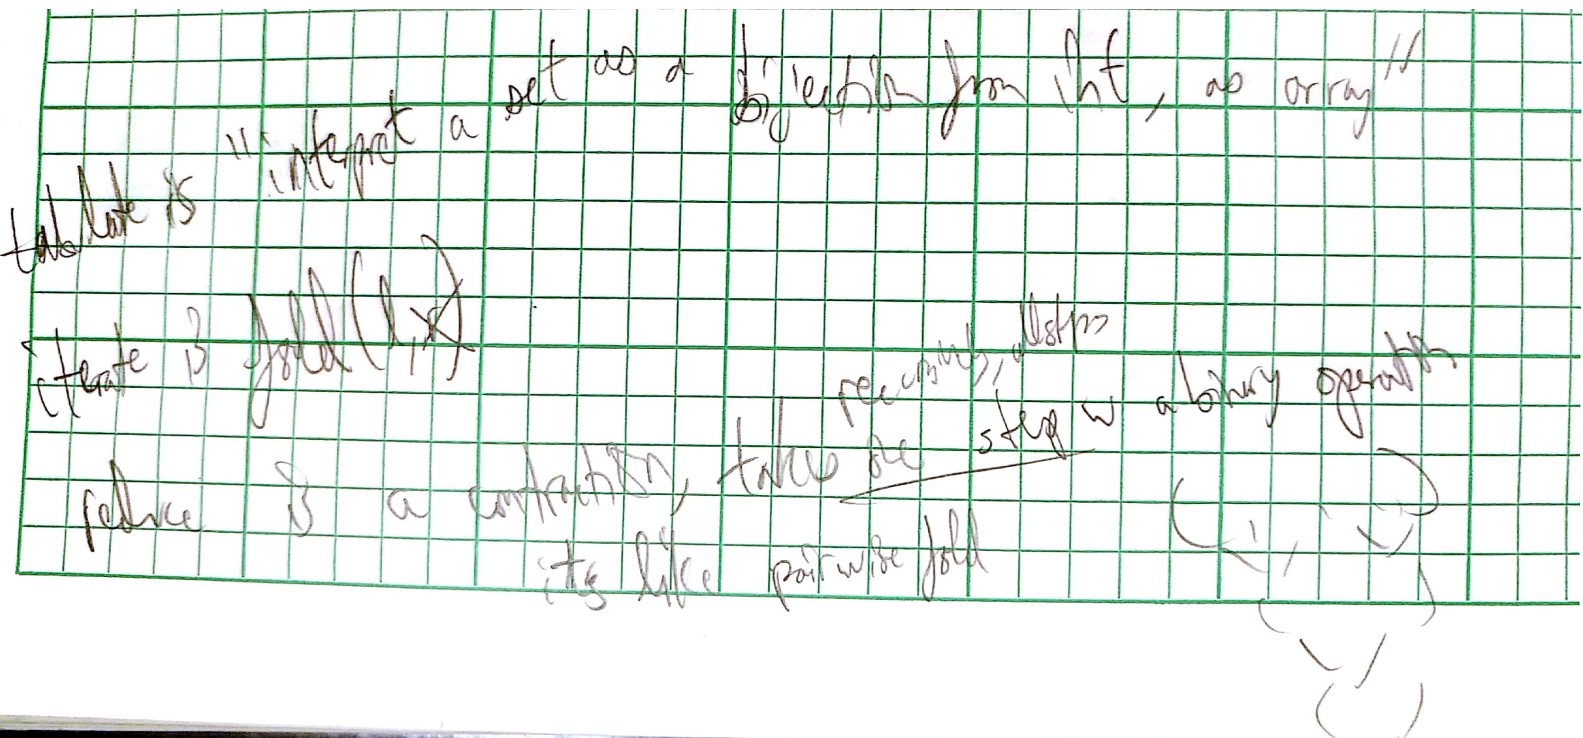 tabulate is "interpret a set as a bijection from int, as array"
iterate is fold(l,x)
recursively,
reduce is a contraction, takes one step w a binary operation
its like pairwise fold